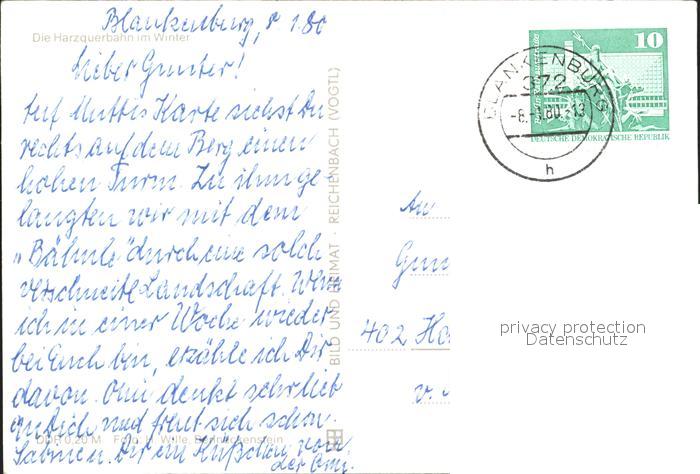 Blankenburg, 8.1.80
Die Harzquerbahn im Winter
Lieber Gunter!
Auf Muttis Karte siehst Du
rechts auf dem Berg einen
hohen Turm. Zu ihm ge
langten wir mit dem
„Bähnle" durch eine solch
verschneite Landschaft. Wenn
ich in einer Woche wieder
bei Euch bin, erzähle ich Dir
davon. Omi denkt sehr lieb
an Dich und freut sich schon.
DDR 0,20 M Foto: H. Wille,
Dir ein Küßchen von
der Omi.
BILD UND HEIMAT · REICHENBACH (VOGTL)
10
DEUTSCHE DEMOKRATISCHE REPUBLIK
BLANKENBURG
372
-8.-1.80.-13
h
An
402
v.
privacy protection
Datenschutz